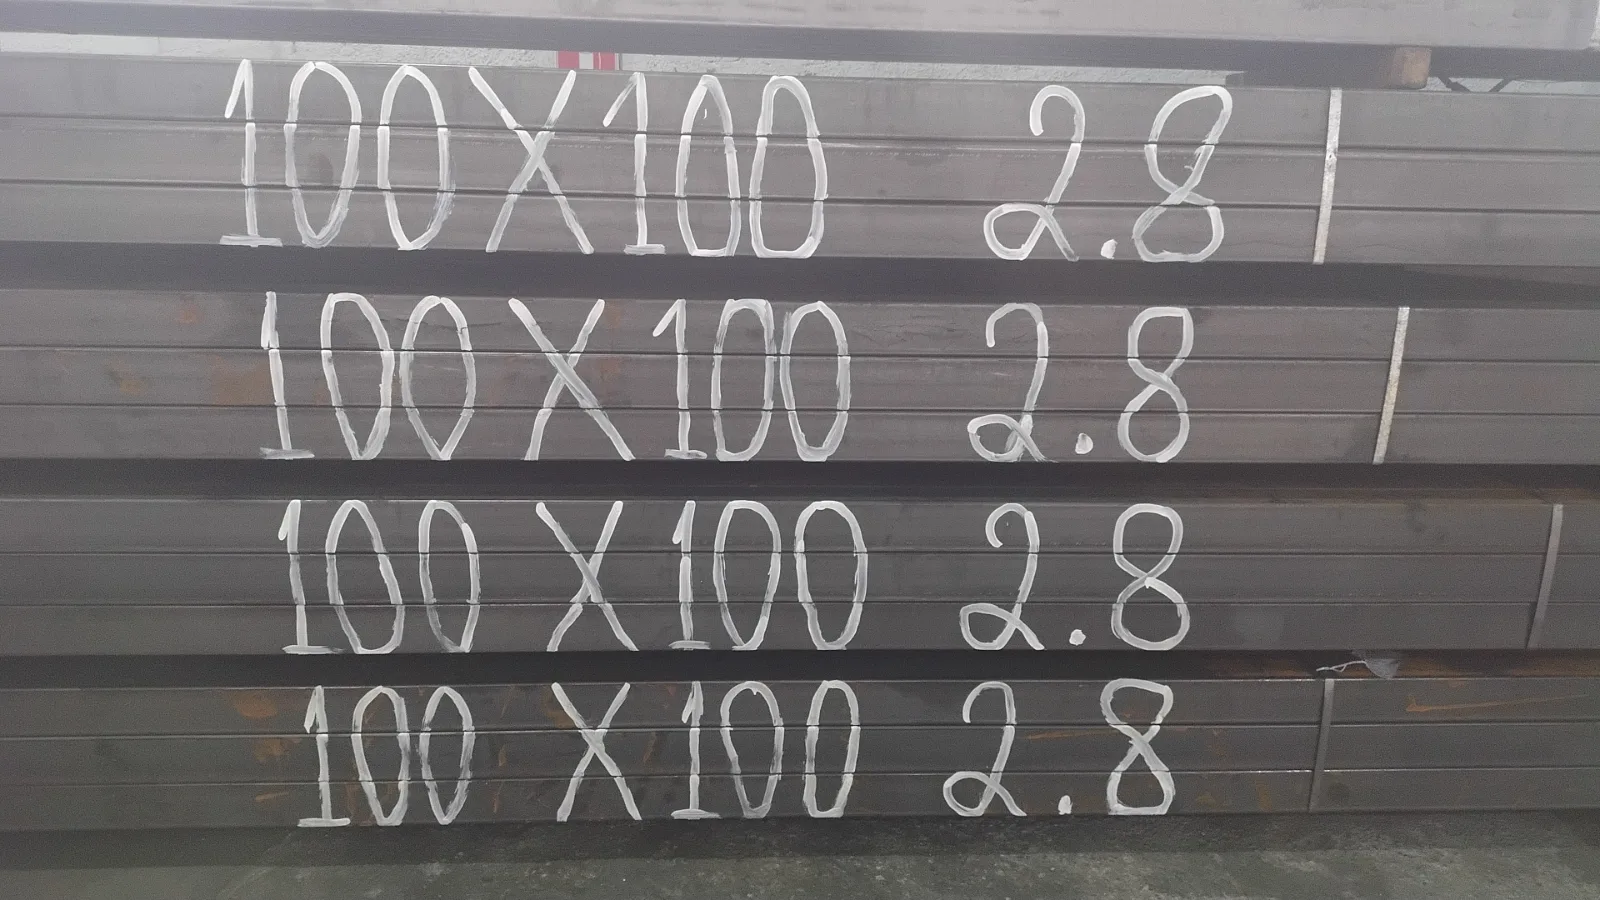 100X100 2.8
100X100 2.8
100X100 2.8
100X100 2.8